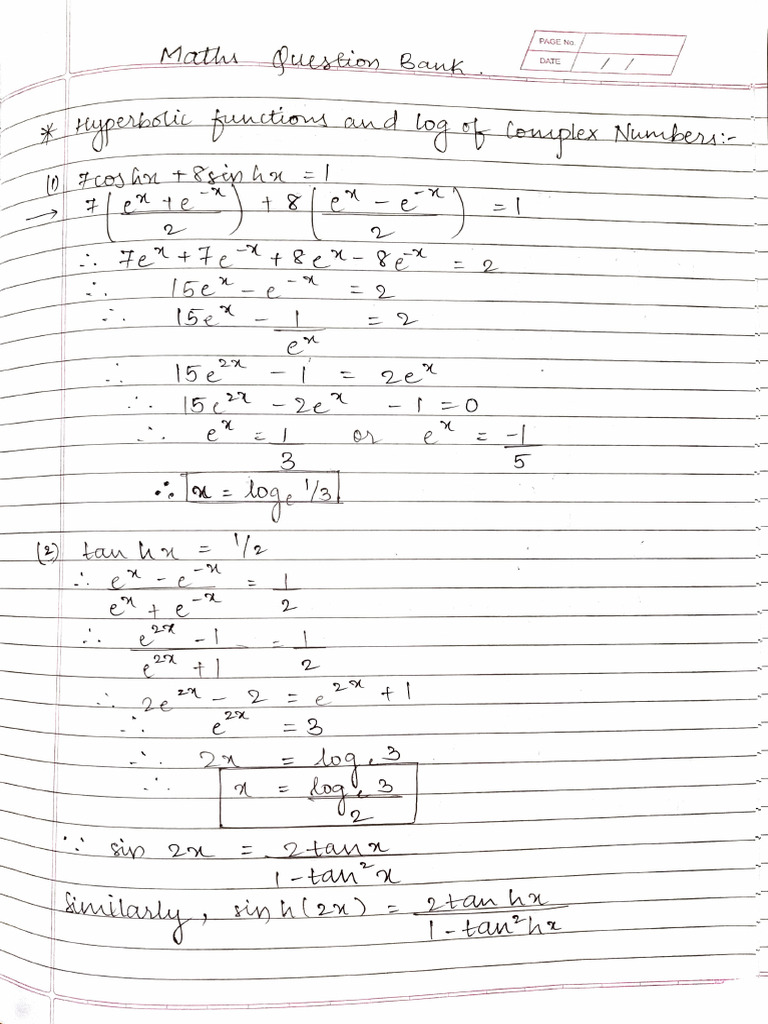 PAGE No.
DATE / /
Maths Question Bank.
* Hyperbolic functions and log of Complex Numbers:-
(1) 7coshx + 8sinhx = 1
→ 7((e^x + e^-x)/2) + 8((e^x - e^-x)/2) = 1
∴ 7e^x + 7e^-x + 8e^x - 8e^-x = 2
∴ 15e^x - e^-x = 2
∴ 15e^x - 1/e^x = 2
∴ 15e^2x - 1 = 2e^x
∴ 15e^2x - 2e^x - 1 = 0
∴ e^x = 1/3 or e^x = -1/5
∴ x = log_e 1/3
(2) tanhx = 1/2
∴ (e^x - e^-x)/(e^x + e^-x) = 1/2
∴ (e^2x - 1)/(e^2x + 1) = 1/2
∴ 2e^2x - 2 = e^2x + 1
∴ e^2x = 3
∴ 2x = log_e 3
∴ x = log_e 3/2
∵ sin 2x = 2tanx/(1-tan²x)
Similarly, sinh(2x) = 2tanhx/(1-tan²hx)